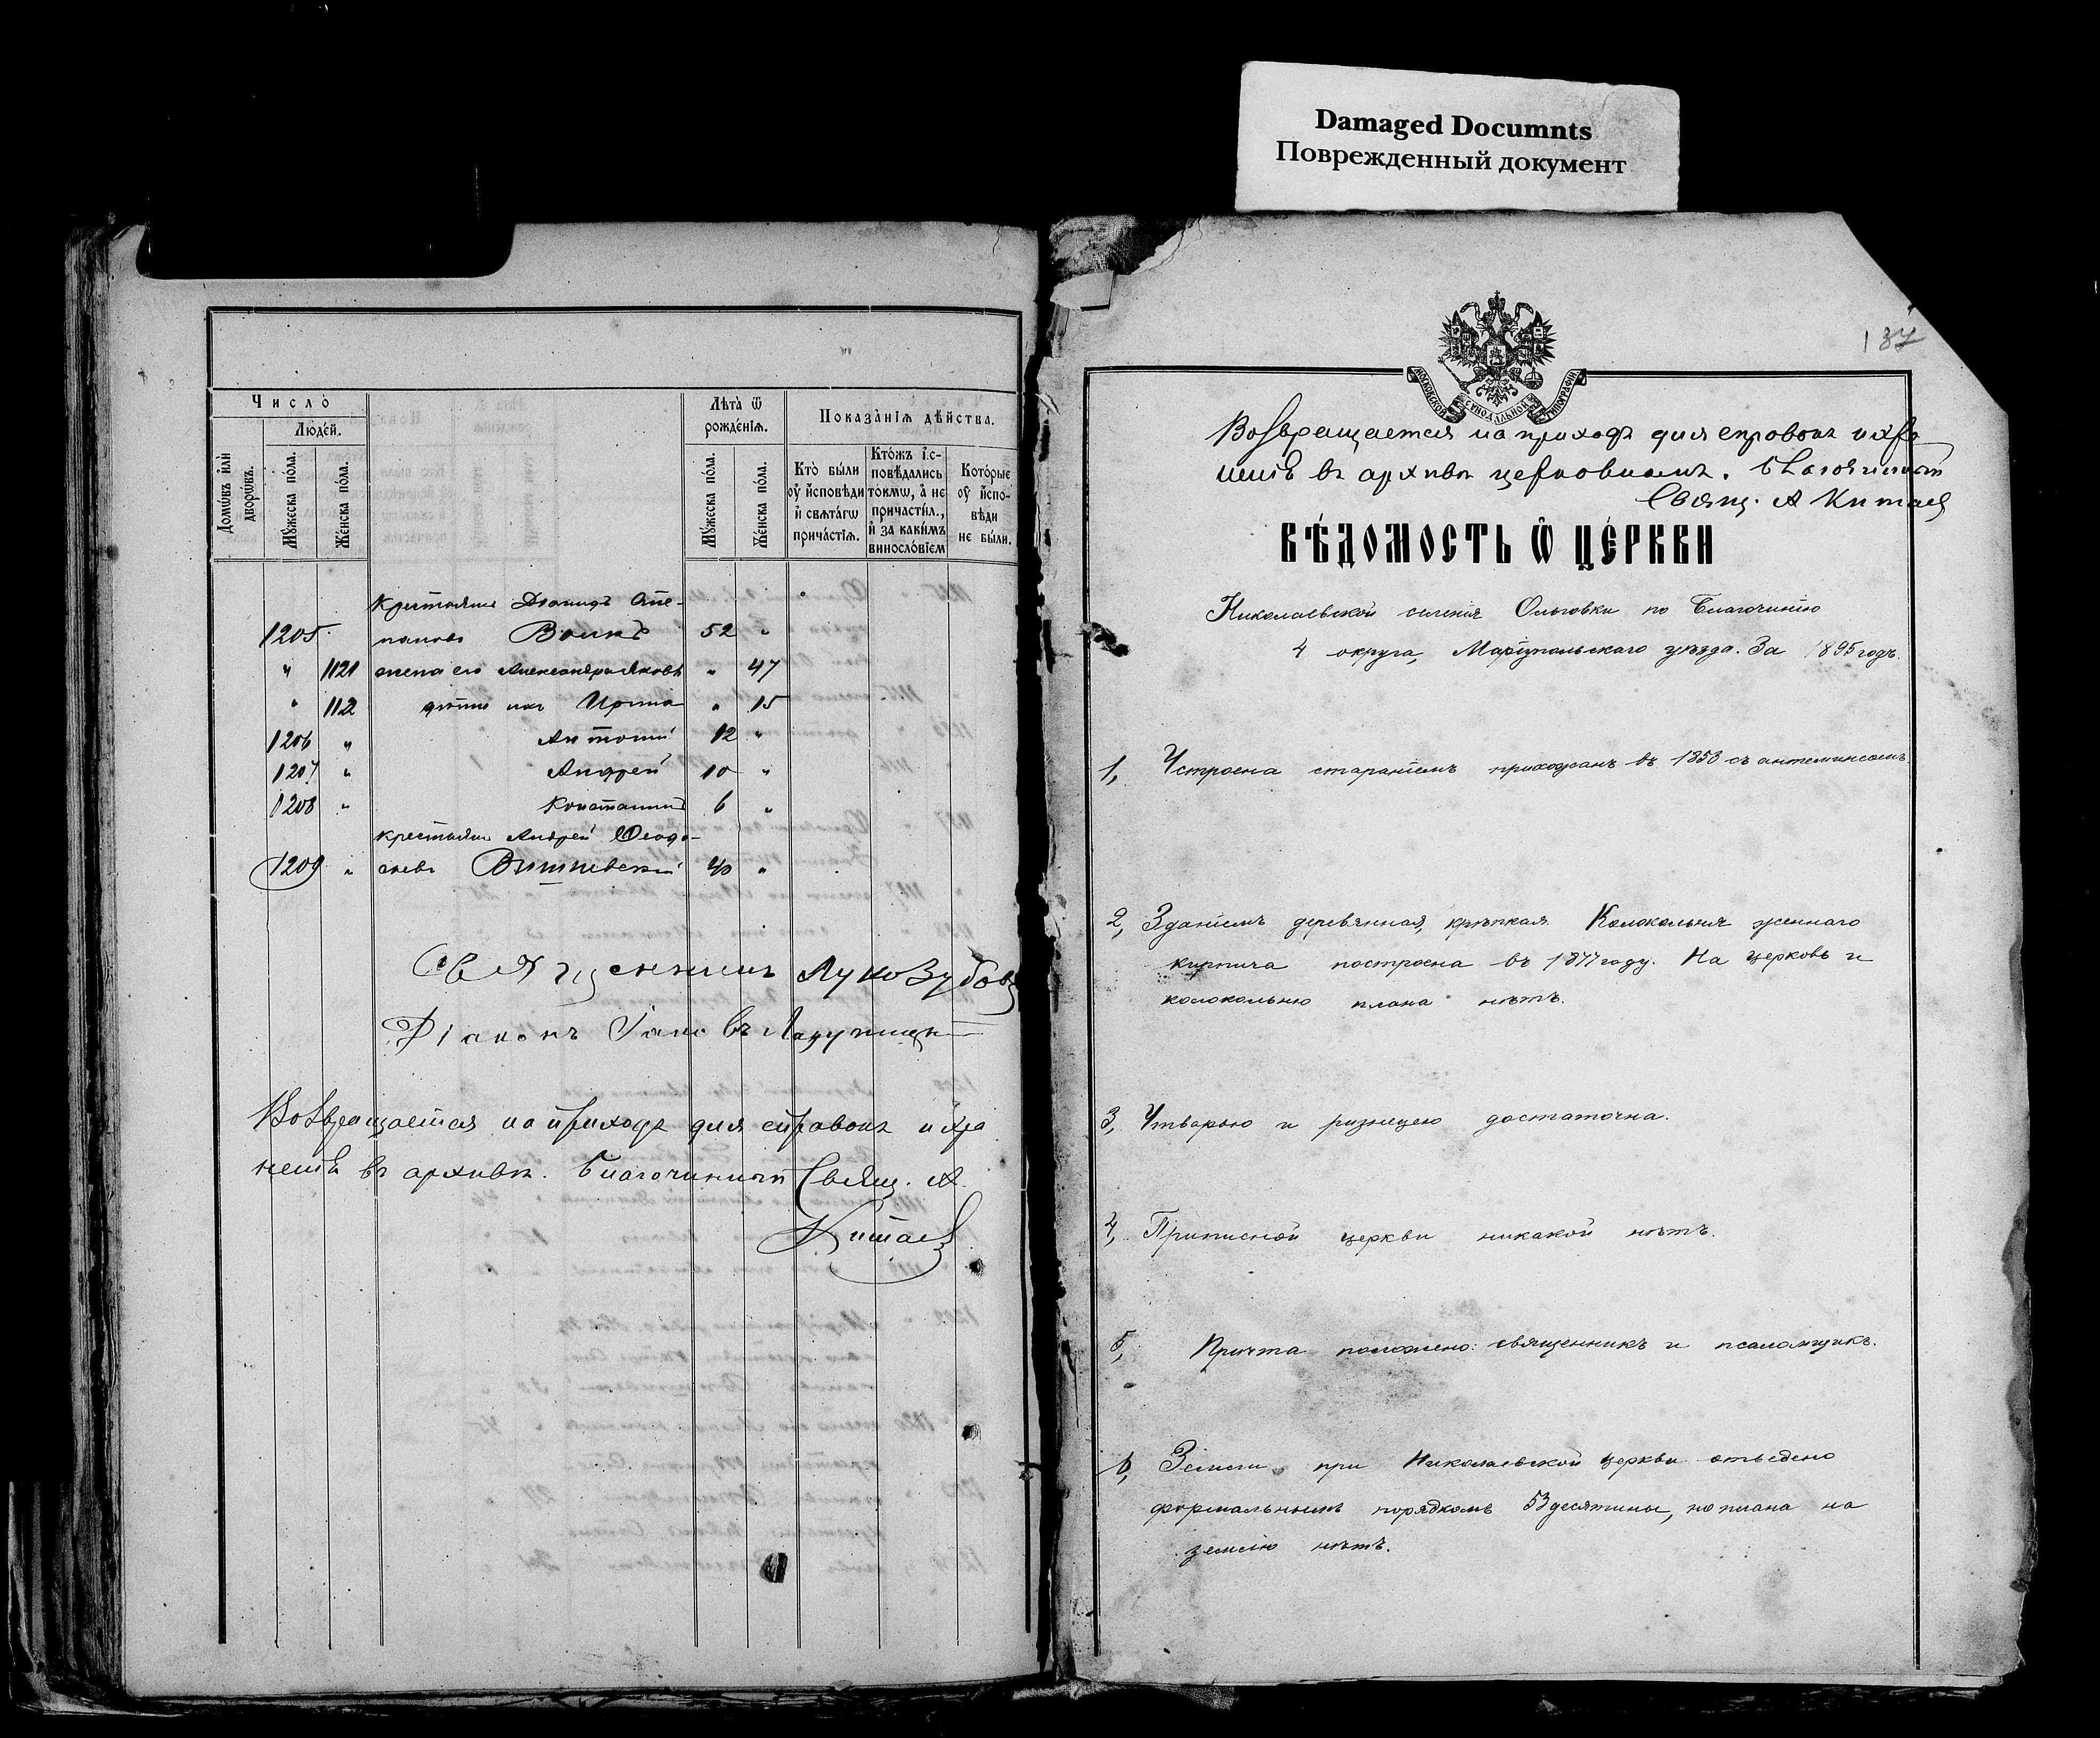 Damaged Documnts
Поврежденный документ
Число̀
Люде́й.
Домѡ́въ и҆лѝ дворѡ́въ.
Мꙋ́жеска по́ла.
Же́нска по́ла.
Лѣ́та ѿ рожде́нїѧ.
Мꙋ́жеска по́ла.
Же́нска по́ла.
Показа́нїѧ дѣ́йства.
Кто̀ бы́ли оу҆ и҆сповѣди и҆ свѧта́гѡ прича́стїѧ.
Кто́жъ и҆сповѣ́дались то́кмѡ, а҆ не причасти́л., и҆ за каки́мъ винослѡ́вїемъ
Кото́рые оу҆ и҆сповѣди не бы́ли.
Крестьянинъ Діомидъ Сте-
1205. пановъ Волкъ 52 "
" 1121 жена его Александра Яковл " 47
" 112 дѣти ихъ Ирина " 15
1206 " Антоній 12 "
1207 " Андрей 10 "
1208 " Константинъ 6 "
крестьянинъ Андрей Ѳеодо-
1209 " сіевъ Вишневскій 40 "
Священникъ Лука Зубовъ
Діаконъ Іаковъ
Возвращается на приходъ для справокъ и хра
ненія въ архивѣ. Благочинный Свящ. А.
Китаевъ
137
МОСКОВСКОЙ СУНОДАЛЬНОЙ ТИПОГРАФІИ
Возвращается на приходъ для справокъ и хра
ненія въ архивѣ церковномъ. Благочинный
Свящ. А Китаев
ВѢ́ДОМОСТЬ Ѡ҆ ЦЕ́РКВИ
Николаевской селенія Ольговки по Благочинію
4 округа, Маріупольскаго уѣзда. За 1895 годъ.
1, Устроена стараніемъ прихожанъ въ 1858 съ антеминсомъ.
2, Зданіемъ деревянная, крѣпкая. Колокольня жженнаго
кирпича построена въ 1877 году. На церковь и
колокольню плана нѣтъ.
3, Утварью и ризницею достаточна.
4, Приписной церкви никакой нѣтъ.
5, Причта положено: священникъ и псаломщикъ.
6, Земли при Николаевской церкви отведено
формальнымъ порядкомъ 53 десятины, но плана на
землю нѣтъ.